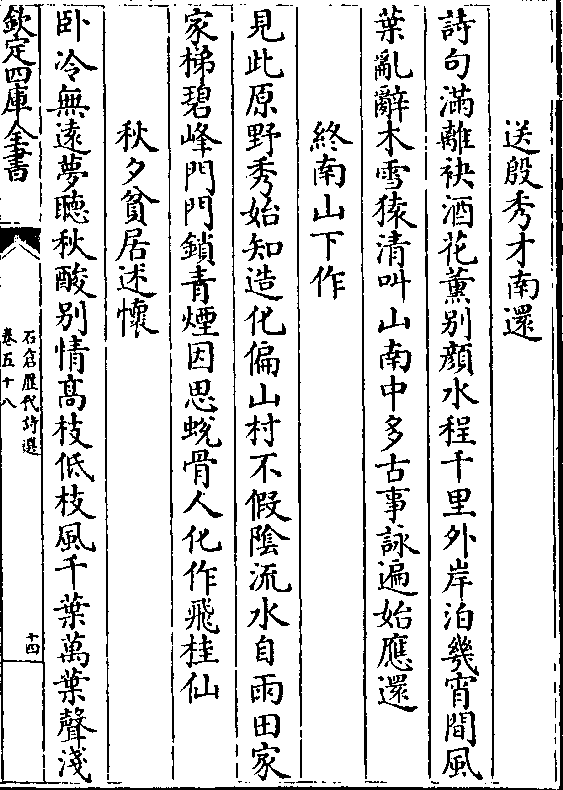 送殷秀才南還
詩句滿離袂酒花薰别顔水程千里外岸泊幾宵間風
葉亂辭木雪猿清叫山南中多古事詠遍始應還
終南山下作
見此原野秀始知造化偏山村不假隂流水自雨田家
家梯碧峰門門鎖青煙因思蛻骨人化作飛桂仙
秋夕貧居述懷
卧冷無遠夢聽秋酸别情髙枝低枝風千葉萬葉聲淺
欽定四庫全書
石倉歷代詩選
卷五十八
十四